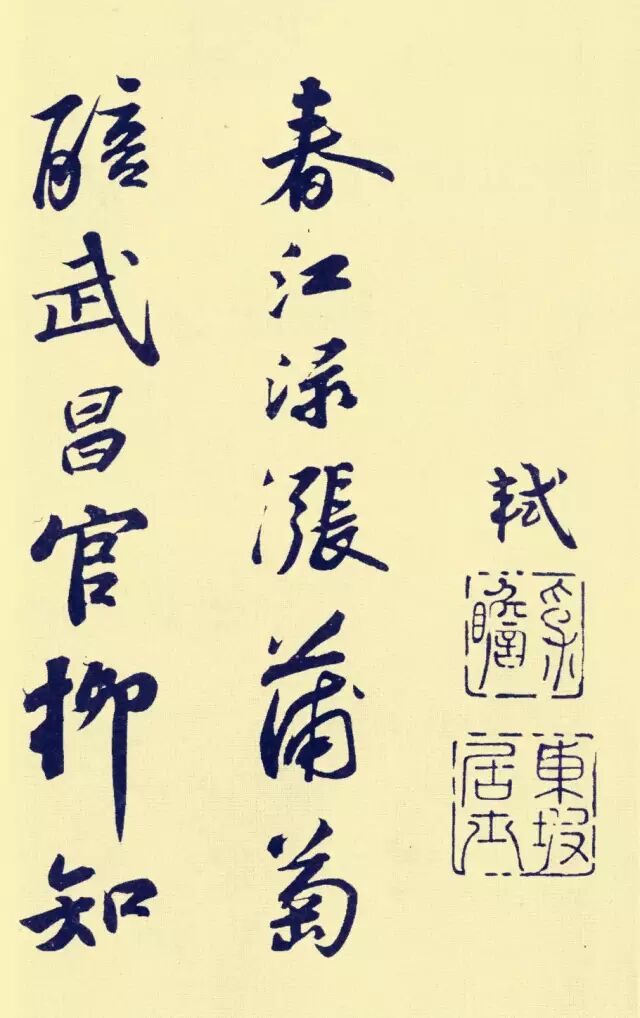 軾
子瞻
東坡居士
春江渌漲蒲萄
醅武昌官柳知